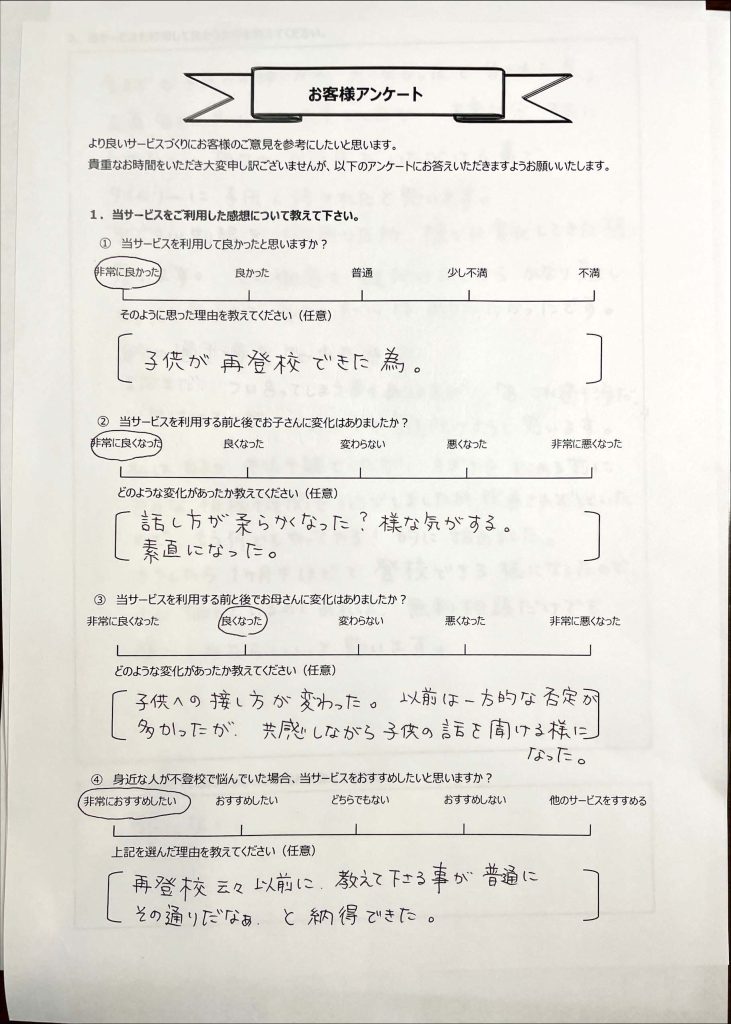 お客様アンケート
より良いサービスづくりにお客様のご意見を参考にしたいと思います。
貴重なお時間をいただき大変申し訳ございませんが、以下のアンケートにお答えいただきますようお願いいたします。
1．当サービスをご利用した感想について教えて下さい。
① 当サービスを利用して良かったと思いますか？
非常に良かった 良かった 普通 少し不満 不満
そのように思った理由を教えてください（任意）
子供が再登校できた為。
② 当サービスを利用する前と後でお子さんに変化はありましたか？
非常に良くなった 良くなった 変わらない 悪くなった 非常に悪くなった
どのような変化があったか教えてください（任意）
話し方が柔らかくなった？様な気がする。
素直になった。
③ 当サービスを利用する前と後でお母さんに変化はありましたか？
非常に良くなった 良くなった 変わらない 悪くなった 非常に悪くなった
どのような変化があったか教えてください（任意）
子供への接し方が変わった。以前は一方的な否定が
多かったが、共感しながら子供の話を聞ける様に
なった。
④ 身近な人が不登校で悩んでいた場合、当サービスをおすすめしたいと思いますか？
非常におすすめしたい おすすめしたい どちらでもない おすすめしない 他のサービスをすすめる
上記を選んだ理由を教えてください（任意）
再登校云々以前に、教えて下さる事が普通に
その通りだなぁ、と納得できた。